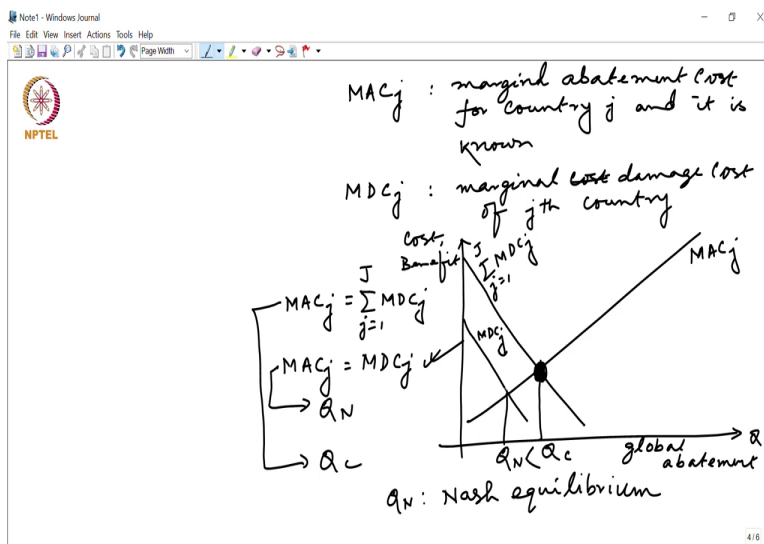 Note1 - Windows Journal
File Edit View Insert Actions Tools Help
Page Width
NPTEL
MACj : marginal abatement cost
for country j and it is
known
MDCj : marginal cost damage cost
of jth country
Cost,
Benefit
J
Σ MDCj
j=1
MACj
MDCj
J
MACj = Σ MDCj
j=1
MACj = MDCj
QN
QC
QN < QC
global
abatement
Q
QN: Nash equilibrium
4/6